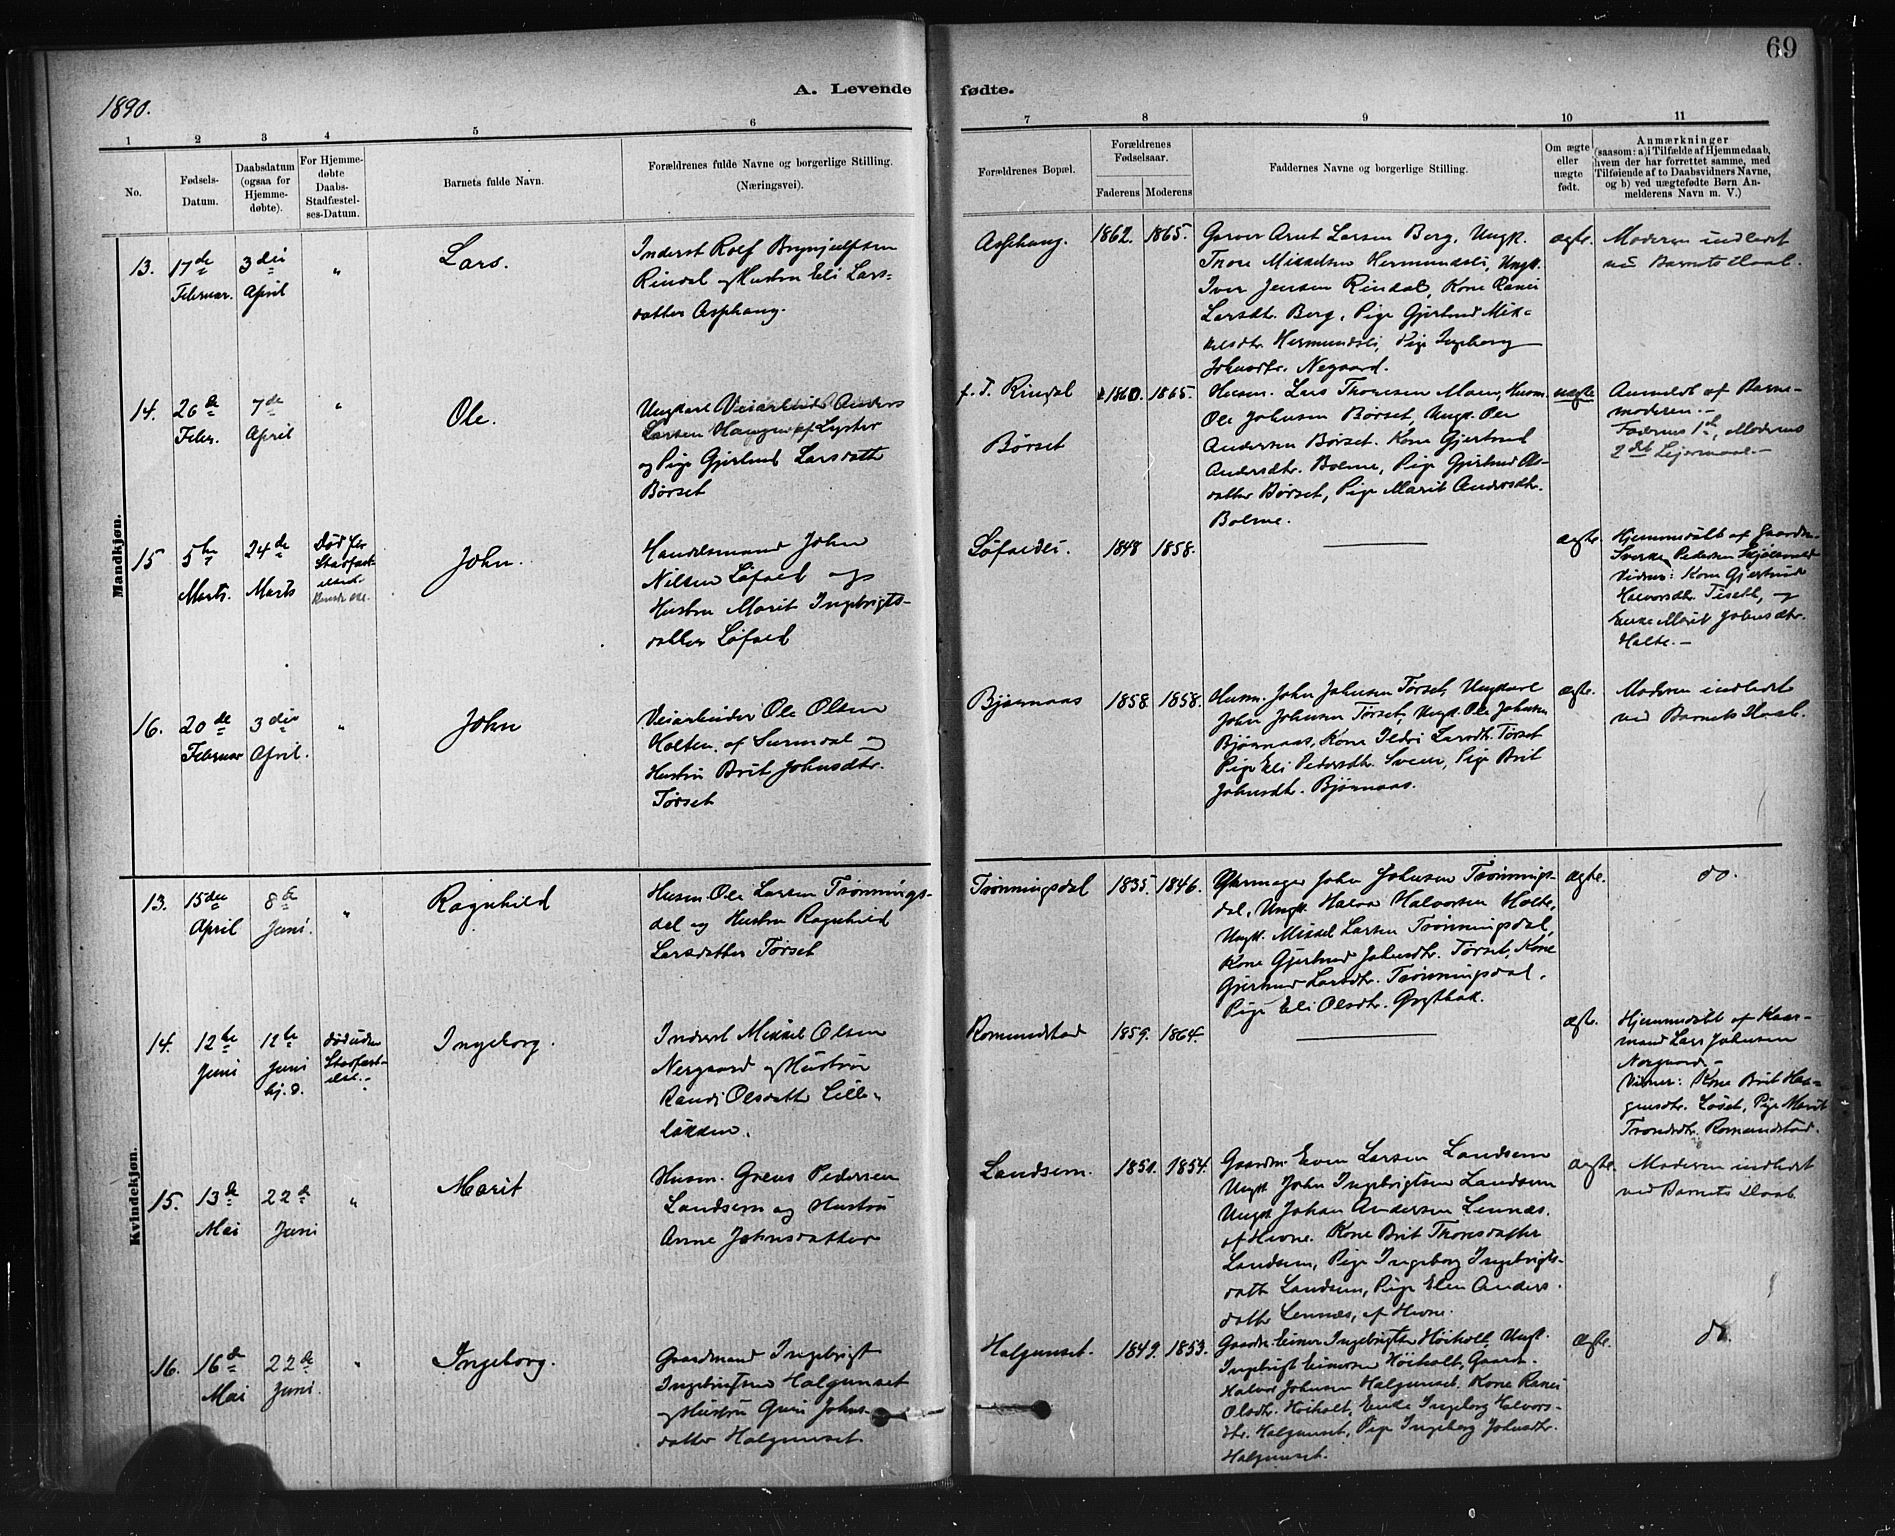 69
1890.
A. Levende fødte.
1 2 3 4 5 6 7 8 9 10 11
No.
Fødsels-
Datum.
Daabsdatum
(ogsaa for
Hjemme-
døbte).
For Hjemme-
døbte
Daabs-
Stadfæstel-
ses-Datum.
Barnets fulde Navn.
Forældrenes fulde Navne og borgerlige Stilling.
(Næringsvei).
Forældrenes Bopæl.
Forældrenes
Fødselsaar.
Faderens Moderens
Faddernes Navne og borgerlige Stilling.
Om ægte
eller
uægte
født.
Anmærkninger
(saasom: a) i Tilfælde af Hjemmedaab,
hvem der har forrettet samme, med
Tilføiende af to Daabsvidners Navne,
og b) ved uægtefødte Børn An-
melderens Navn m. V.)
Mandkjøn.
13.
17de
Februar.
3die
April
"
Lars.
Inderst Rolf Brynjulfsen
Rindal og Hustru Eli Lars-
datter Asphaug.
Asphaug.
1862. 1865.
Garver Arnt Larsen Berg, Ungk.
Thore Mikkelsen Hermundsli, Ungk.
Iver Jensen Rindal, Kone Ranei
Larsdtr. Berg, Pige Gjertrud Mik-
kelsdtr. Hermundsli, Pige Ingeborg
Johnsdtr. Negaard.
ægte.
Moderen indledet
ved Barnets Daab.
14.
26de
Febr.
7de
April
"
Ole.
Ungkarl Veiarbeider Anders
Larsen Haugen af Lyster
og Pige Gjertrud Larsdatter
Børset
f. T. Rindal
Børset
1860. 1865.
Husm. Lars Thoresen Moen, Husm.
Ole Johnsen Børset, Ungk. Ole
Andersen Børset. Kone Gjertrud
Andersdtr. Bolme, Pige Gjertrud Ols-
datter Børset, Pige Marit Andersdtr.
Bolme.
uægte
Anmeldt af Barne-
moderen.-
Faderens 1ste, Moderens
2det Leiermaal.-
15
5te
Marts.
24de
Marts
Død før
Stadfæst-
else
John.
Handelsmand John
Nilsen Løfald og
Hustru Marit Ingebrigts-
datter Løfald
Løfaldli.
1848 1858.
ægte.
Hjemmedøbt af Gaardm.
Sverke Pedersen
Vidner: Kone Gjertrud
Halvorsdtr. Tiset, og
Enke Marit Johnsdtr.
Holte.-
16.
20de
Februar
3die
April.
"
John
Veiarbeider Ole Olsen
Holten af Surendal og
Hustru Brit Johnsdtr.
Tørset
Bjørnaas
1858. 1858.
Husm. John Johnsen Tørset, Ungkarl
John Johnsen Tørset, Ungk. Ole Johnsen
Bjørnaas, Kone Ildri Larsdtr. Tørset
Pige Eli Pedersdtr. Sveen, Pige Brit
Johnsdtr. Bjørnaas.
ægte.
Moderen indledet
ved Barnets Daab.
Kvindekjøn.
13.
15de
April
8de
Juni.
"
Ragnhild
Husm. Ole Larsen Trønnings-
dal og Hustru Ragnhild
Larsdatter Tørset
Trønningsdal
1835. 1846.
Uhrmager John Johnsen Trønnings-
dal, Ungk. Halvor Halvorsen Holte,
Ungk. Mikkel Larsen Trønningsdal,
Kone Gjertrud Johnsdtr. Tørset, Kone
Gjertrud Larsdtr. Trønningsdal,
Pige Eli Olsdtr. Grytbak.
ægte.
do.
14.
12te
Juni
12te
Juni
hj. d.
død uden
Stadfæst-
else.-
Ingeborg.
Inderst Mikkel Olsen
Nergaard og Hustru
Randi Olsdatter Lille-
løkken.
Romundstad
1859. 1864.
ægte.
Hjemmedøbt af Kaar-
mand Lars Johnsen
Nergaard.-
Vidner: Kone Brit Haa-
gensdtr. Løset, Pige Marit
Trondsdtr. Romundstad.
15.
13de
Mai
22de
Juni
"
Marit
Husm. Grens Pedersen
Landsem og Hustru
Anne Johnsdatter
Landsem.
1850. 1854.
Gaardm. Even Larsen Landsem
Ungk. John Ingebrigtsen Landsem
Ungk. Johan Andersen Lennæs,
af Hevne. Kone Brit Thoresdatter
Landsem, Pige Ingeborg Ingebrigts-
datter Landsem, Pige Elen Anders-
datter Lennæs, af Hevne.
ægte.
Moderen indledet
ved Barnets Daab.
16.
16de
Mai
22de
Juni.
"
Ingeborg.
Gaardmand Ingebrigt
Ingebrigtsen Halgunset
og Hustru Guri Johns-
datter Halgunset.
Halgunset.
1849. 1853.
Gaardm. Einar Ingebrigtsen Høiholt, Ungk.
Ingebrigt Einarsen Høiholt, Gaardm.
Halvor Johnsen Halgunset. Kone Ranei
Olsdtr. Høiholt, Enke Ingeborg Halvors-
dtr. Halgunset, Pige Ingeborg Johnsdtr.
Halgunset.
ægte.
do.